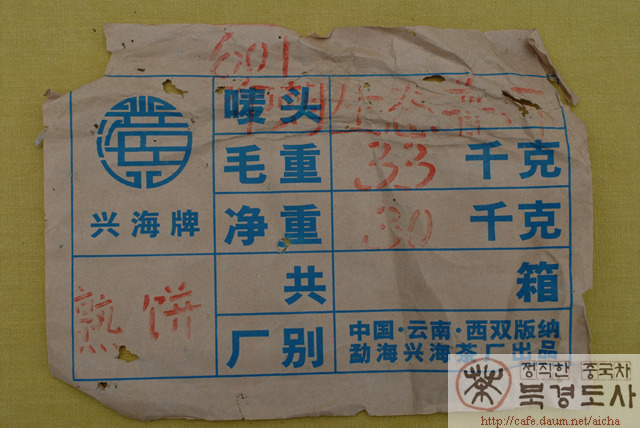 601
唛头 生态普洱
毛重 33 千克
兴海牌
净重 30 千克
熟饼
共 箱
厂别 中国·云南·西双版纳
勐海兴海茶厂出品
茶
정직한 중국차
북경도사
http://cafe.daum.net/aicha